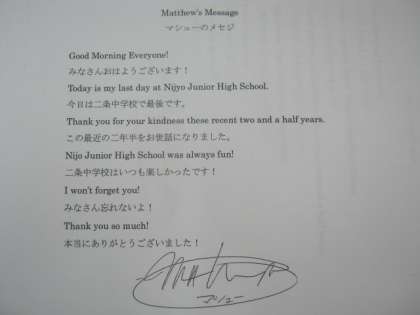 Matthew's Message
マシューのメセジ
Good Morning Everyone!
みなさんおはようございます！
Today is my last day at Nijyo Junior High School.
今日は二条中学校で最後です。
Thank you for your kindness these recent two and a half years.
この最近の二年半をお世話になりました。
Nijo Junior High School was always fun!
二条中学校はいつも楽しかったです！
I won't forget you!
みなさん忘れないよ！
Thank you so much!
本当にありがとうございました！
マシュー